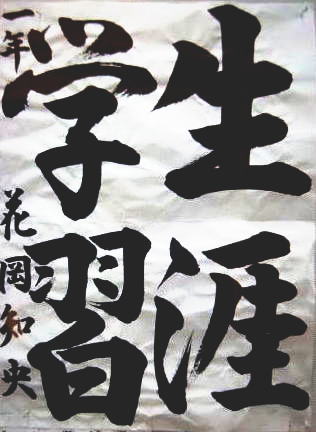 生涯
学習
一年 花岡知央